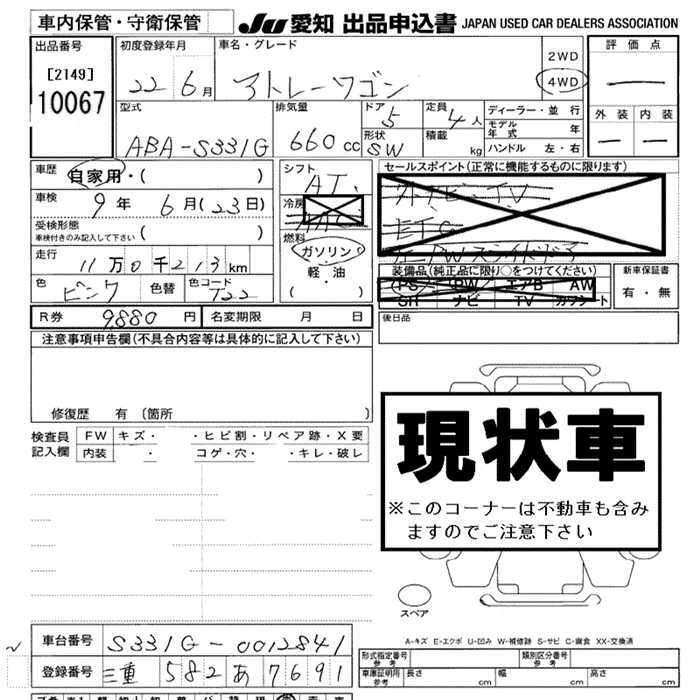 車内保管・守衛保管
JU 愛知 出品申込書 JAPAN USED CAR DEALERS ASSOCIATION
出品番号
[2149]
10067
初度登録年月
22 6月
車名・グレード
アトレーワゴン
2WD
4WD
評価点
外装 内装
型式
ABA-S331G
排気量
660cc
ドア
5
形状
SW
定員
4人
積載
kg
ディーラー・並行
モデル年式 年
ハンドル 左・右
車歴
自家用・( )
車検
9年 6月(23日)
受検形態
車検付きのみ記入して下さい ( )
走行
11万0千213km
色
ピンク
色替
色コード
T22
シフト
AT
冷房
AAC
燃料
ガソリン・
軽・油
( )
セールスポイント(正常に機能するものに限ります)
ナビ TV
ETC
装備品(純正品に限り○をつけてください)
(PS) (PW) エアB AW
SR ナビ TV カワシート
新車保証書
有・無
R券 9880円 名変期限 月 日
後日品
注意事項申告欄(不具合内容等は具体的に記入して下さい)
修復歴 有 〔箇所 〕
検査員
記入欄
FW キズ・ ・ヒビ割・リペア跡・X要
内装 ・ コゲ・穴・ ・キレ・破レ
現状車
※このコーナーは不動車も含み
ますのでご注意下さい
スペア
A-キズ E-エクボ U-凹み W-補修跡 S-サビ C-腐食 XX-交換済
車台番号 S331G-0012841
登録番号 三重 582 あ 7691
形式指定番号
参考
類別区分番号
参考
車庫証明用
参考
長さ 幅 高さ